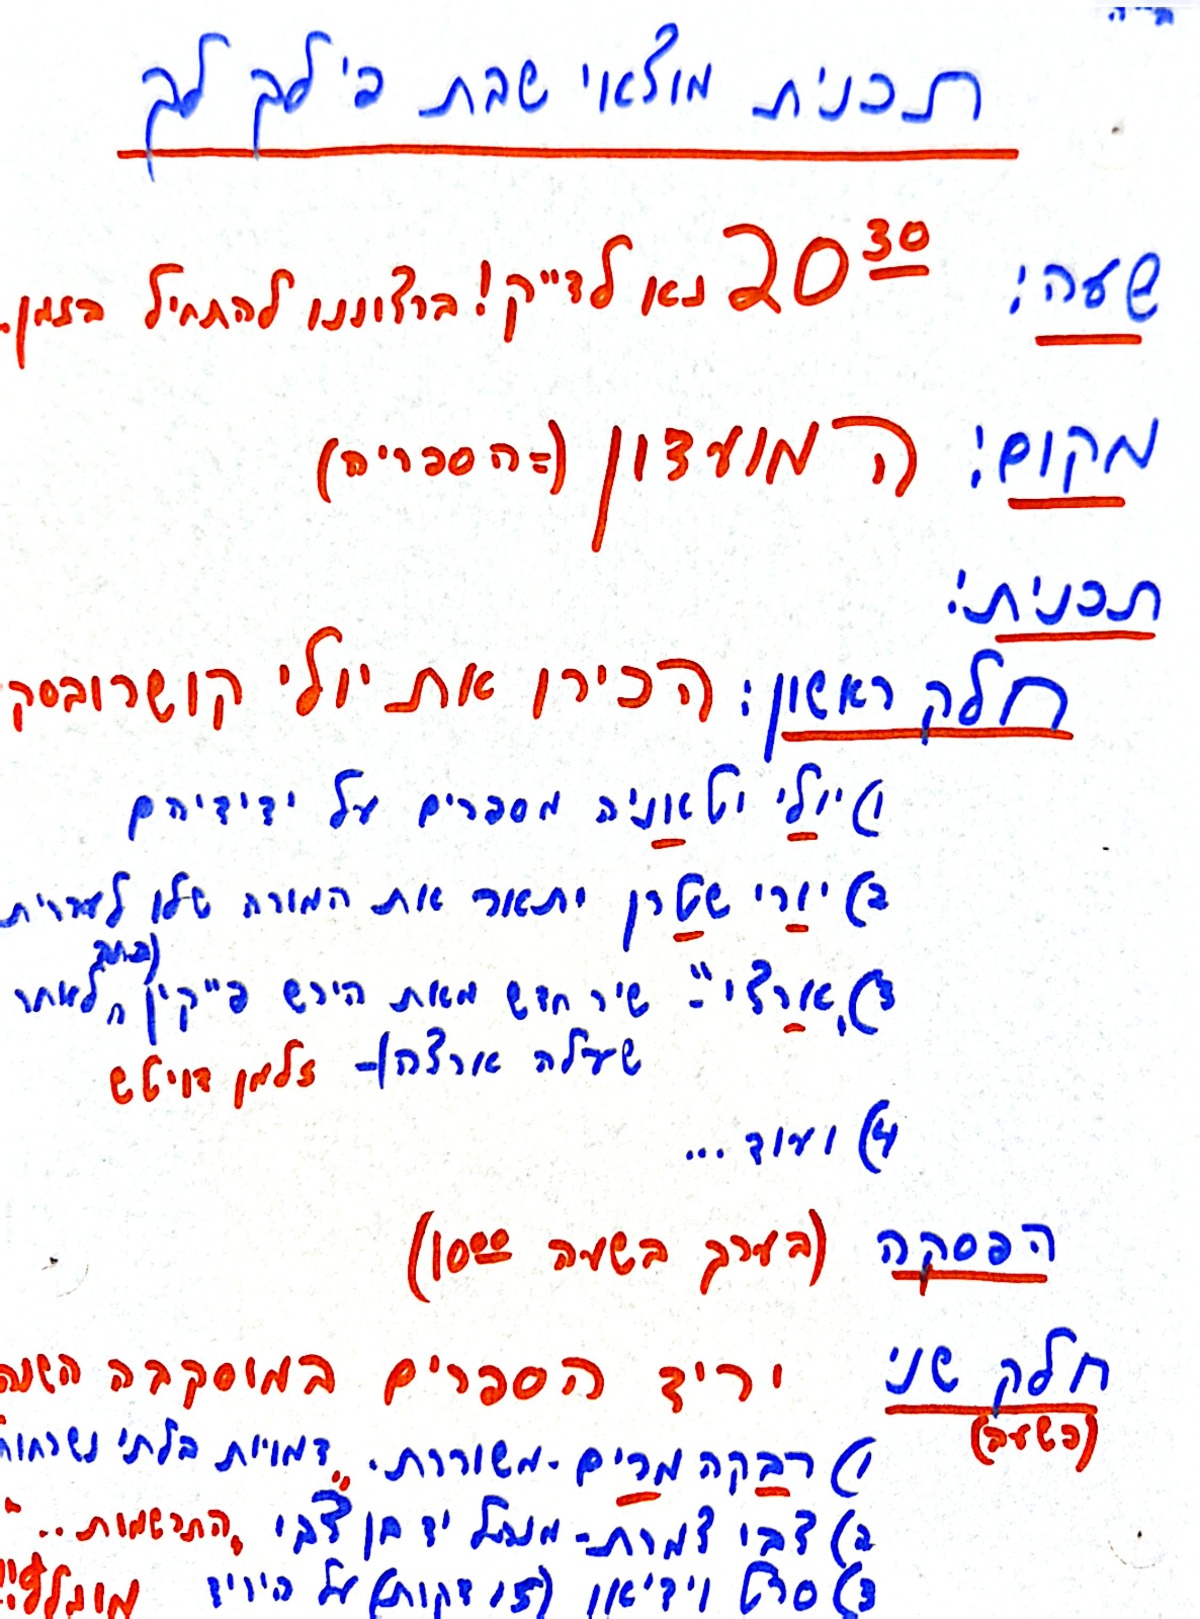 ב"ה
תכנית מוצאי שבת פ' לך לך
שעה: 20³⁰ נא לדי"ק! ברצוננו להתחיל בזמן.
מקום: המועדון (=הספריה)
תכנית:
חלק ראשון: הכירו את יולי קושרובסק
1) יולי וטאניה מספרים על ידידיהם
2) יורי שטרן יתאר את המורה שלו לעברית
3) "ארצי" = שיר חדש מאת הירש פ"קין
שעלה ארצה) - זלמן דויטש
4) ועוד...
הפסקה (בערך בשעה 10⁰⁰)
חלק שני יריד הספרים במוסקבה השנה
1) רבקה מרים - משוררת - "דמויות בלתי נשכחות
2) צבי צמרת - מנהל יד בן צבי "התרשמות.."
3) סרט וידיאו (15 דקות) על היריד